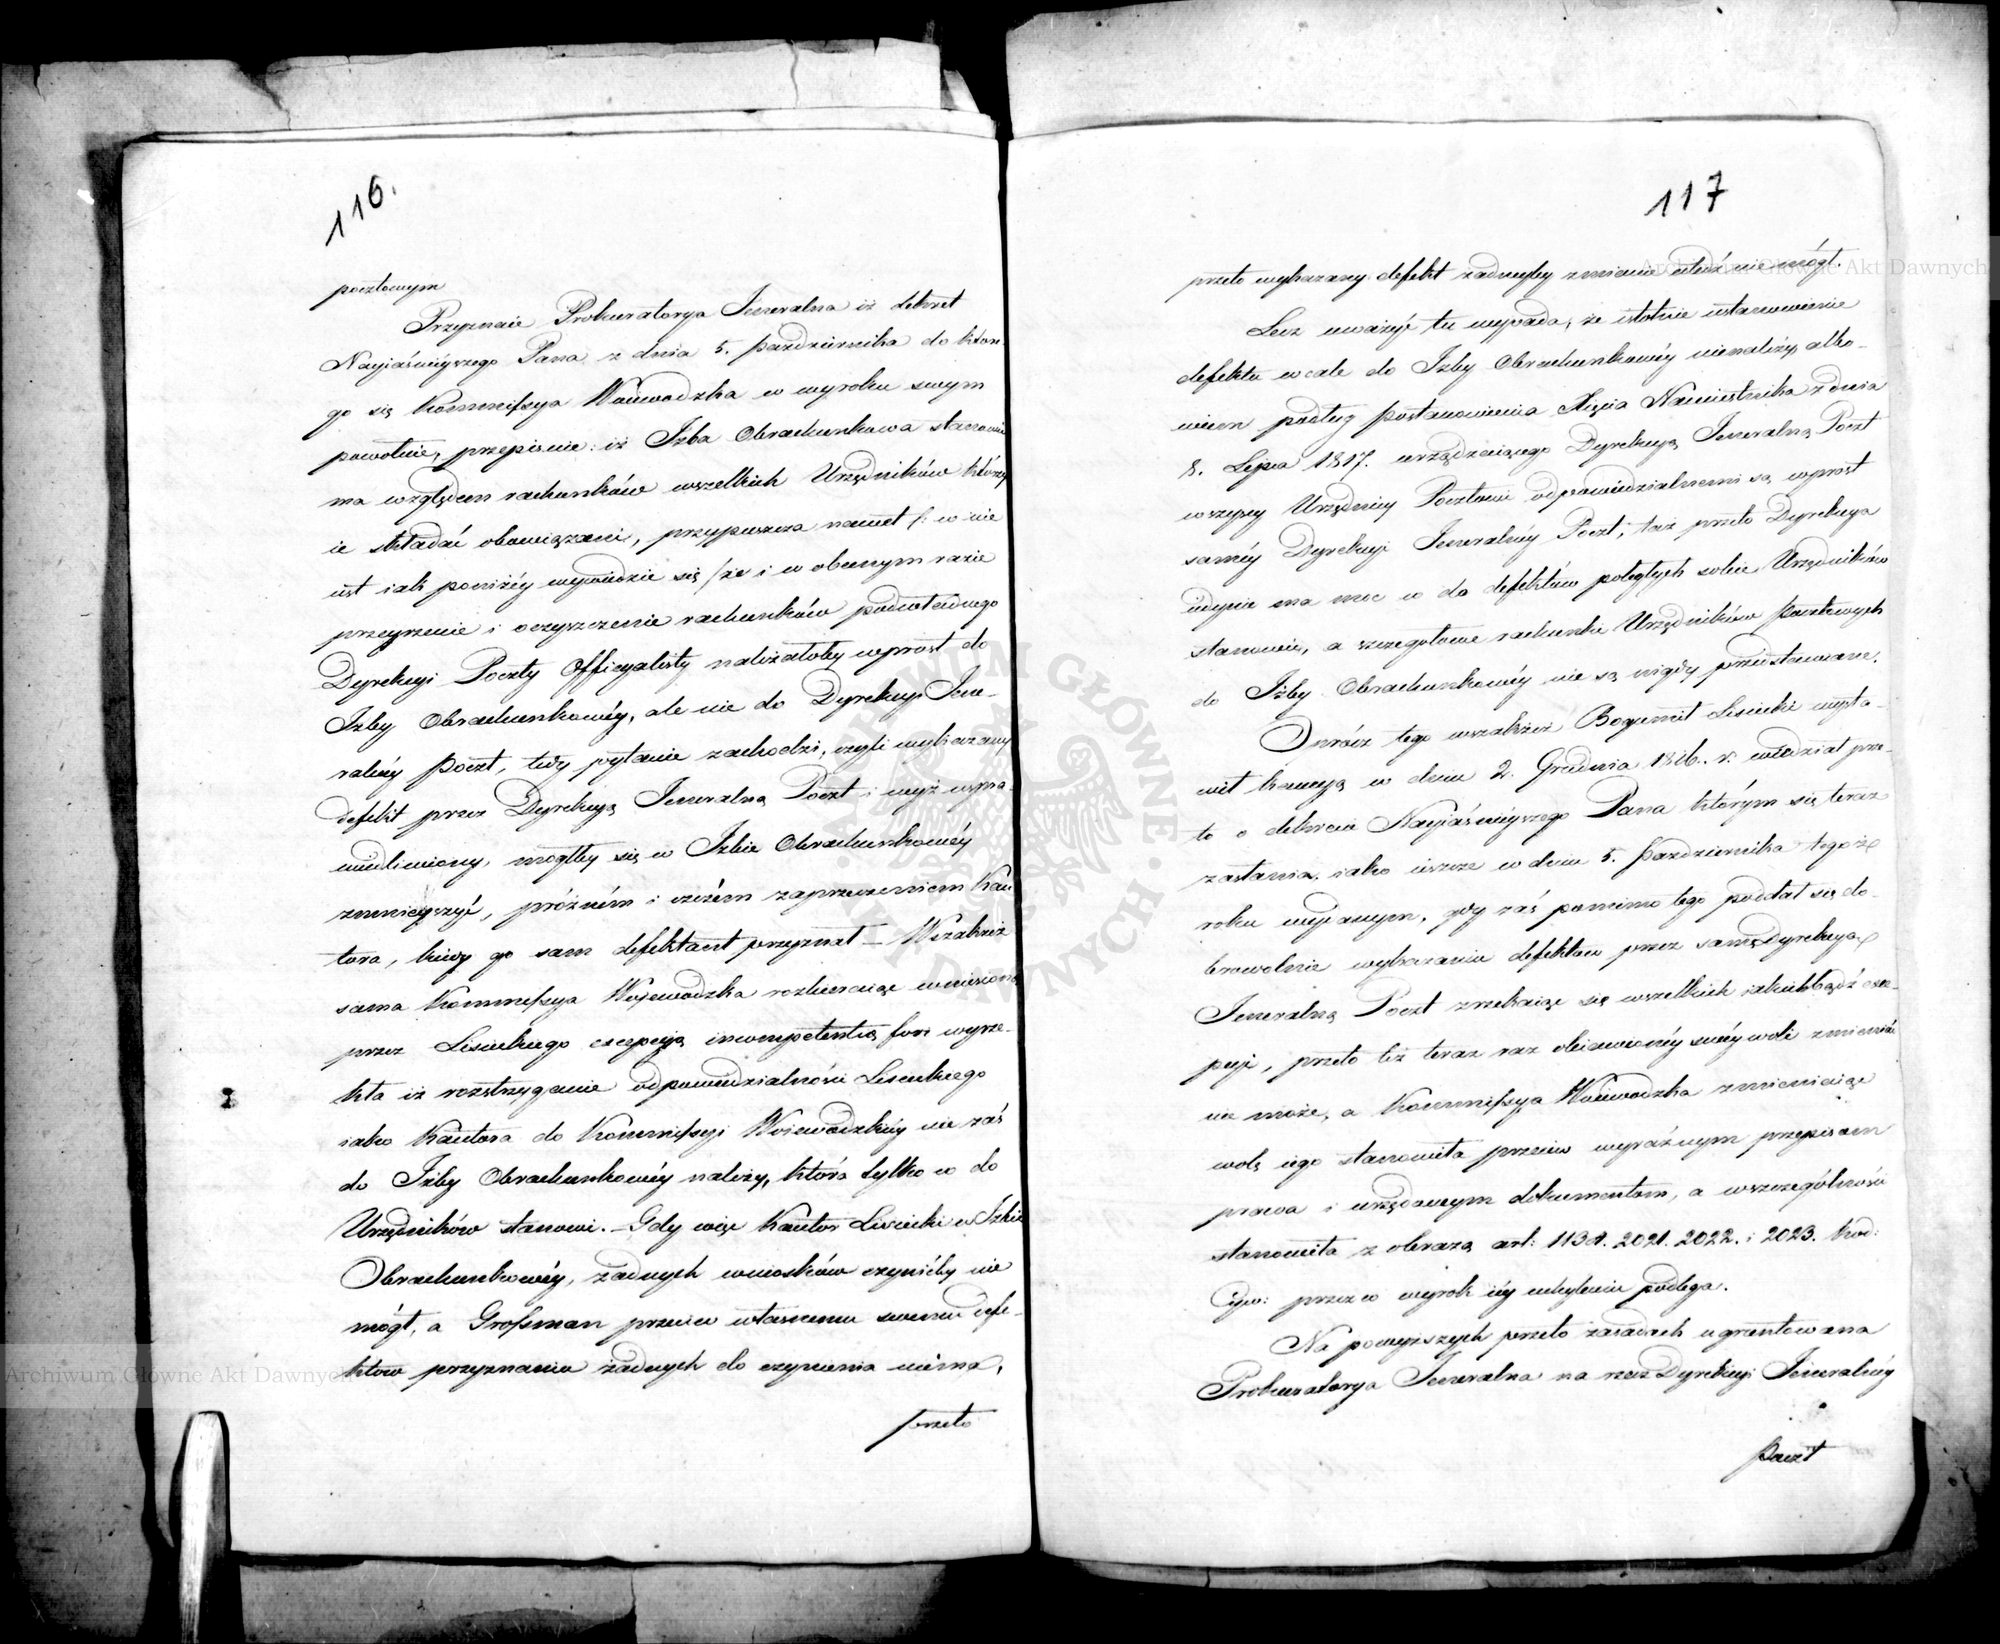 116.
pocztowym
Przyznaie Prokuratorya Jeneralna iż dekret
Nayiaśnieyszego Pana z dnia 5. października do które-
go się Kommissya Woiewodzka w wyroku swym
powołuie, przepisuie: iż Izba Obrachunkowa stanowić
ma względem rachunków wszelkich Urzędników którzy
ie składać obowiązani, przypuszcza nawet /: co nie
iest iak poniżéy wywiedzie się /że i w obecnym razie
przeyrzenie i oczyszczenie rachunków podwładnego
Dyrekcyi Poczty Officyalisty należałoby wprost do
Izby Obrachunkowéy, ale nie do Dyrekcyi Jene-
ralnéy Poczt, tedy pytanie zachodzi, czyli wykazany
defekt przez Dyrekcyą Jeneralną Poczt i wyż uspra-
wiedliwiony, mógłby się w Izbie Obrachunkowéy
zmnieyszyć, próżném i czczém zaprzeczeniem Kau-
tora, kiedy go sam defektant przyznał – Wszakżeż
sama Kommissya Wojewodzka rozbieraiąc wniesioną
przez Lisieckiego excepcyą incompetentia fori wyrze-
kła iż rozstrzyganie odpowiedzialności Lisieckiego
iako Kautora do Kommissyi Woiewodzkiéy nie zaś
do Izby Obrachunkowéy należy, która tylko co do
Urzędników stanowi. – Gdy więc Kautor Lisiecki w Izbie
Obrachunkowéy, żadnych wniosków czynićby nie
mógł, a Grossman przeciw własnemu swemu defe-
któw przyznaniu żadnych do czynienia niema,
przeto
117
przeto wykazany defekt żadneyby zmianie uledz nie mógł.
Lecz uważyć tu wypada, że istotnie ustanowienie
defektu wcale do Izby Obrachunkowéy nienależy, albo-
wiem podług postanowienia Xięcia Namiestnika z dnia
8. Lipca 1817. urządzaiącego Dyrekcyą Jeneralną Poczt
wszyscy Urzędnicy Pocztowi odpowiedzialnemi są wprost
saméy Dyrekcyi Jeneralnéy Poczt, też przeto Dyrekcya
iedynie ma moc co do defektów podległych sobie Urzędników
stanowić, a szczegółowe rachunki Urzędników Pocztowych
do Izby Obrachunkowéy nie są nigdy przedstawiane.
Oprócz tego wszakżeż Bogumił Lisiecki wysta-
wił kaucyą w dniu 2. Grudnia 1816. r. wiedział prze-
to o dekrecie Nayiaśnieyszego Pana którym się teraz
zasłania, iako ieszcze w dniu 5. Października tegoż
roku wydanym, gdy zaś pomimo tego poddał się do-
browolnie wykazaniu defektów przez samę Dyrekcyą
Jeneralną Poczt zrzekaiąc się wszelkich iakichbądź exce-
pcyi, przeto też teraz raz obiawionéy swéy woli zmieniać
nie może, a Kommissya Woiewodzka zmieniaiąc
wolę iego stanowiła przeciw wyraźnym przepisom
prawa i urzędowym dokumentom, a w szczególności
stanowiła z obrazą art: 1134. 2021. 2022. i 2023. Kod:
Cyw: przez co wyrok iéy uchyleniu podlega.
Na powyższych przeto zasadach ugruntowana
Prokuratorya Jeneralna na rzecz Dyrekcyi Jeneralnéy
Poczt
Archiwum Główne Akt Dawnych
Archiwum Główne Akt Dawnych
ARCHIWUM GŁÓWNE AKT DAWNYCH